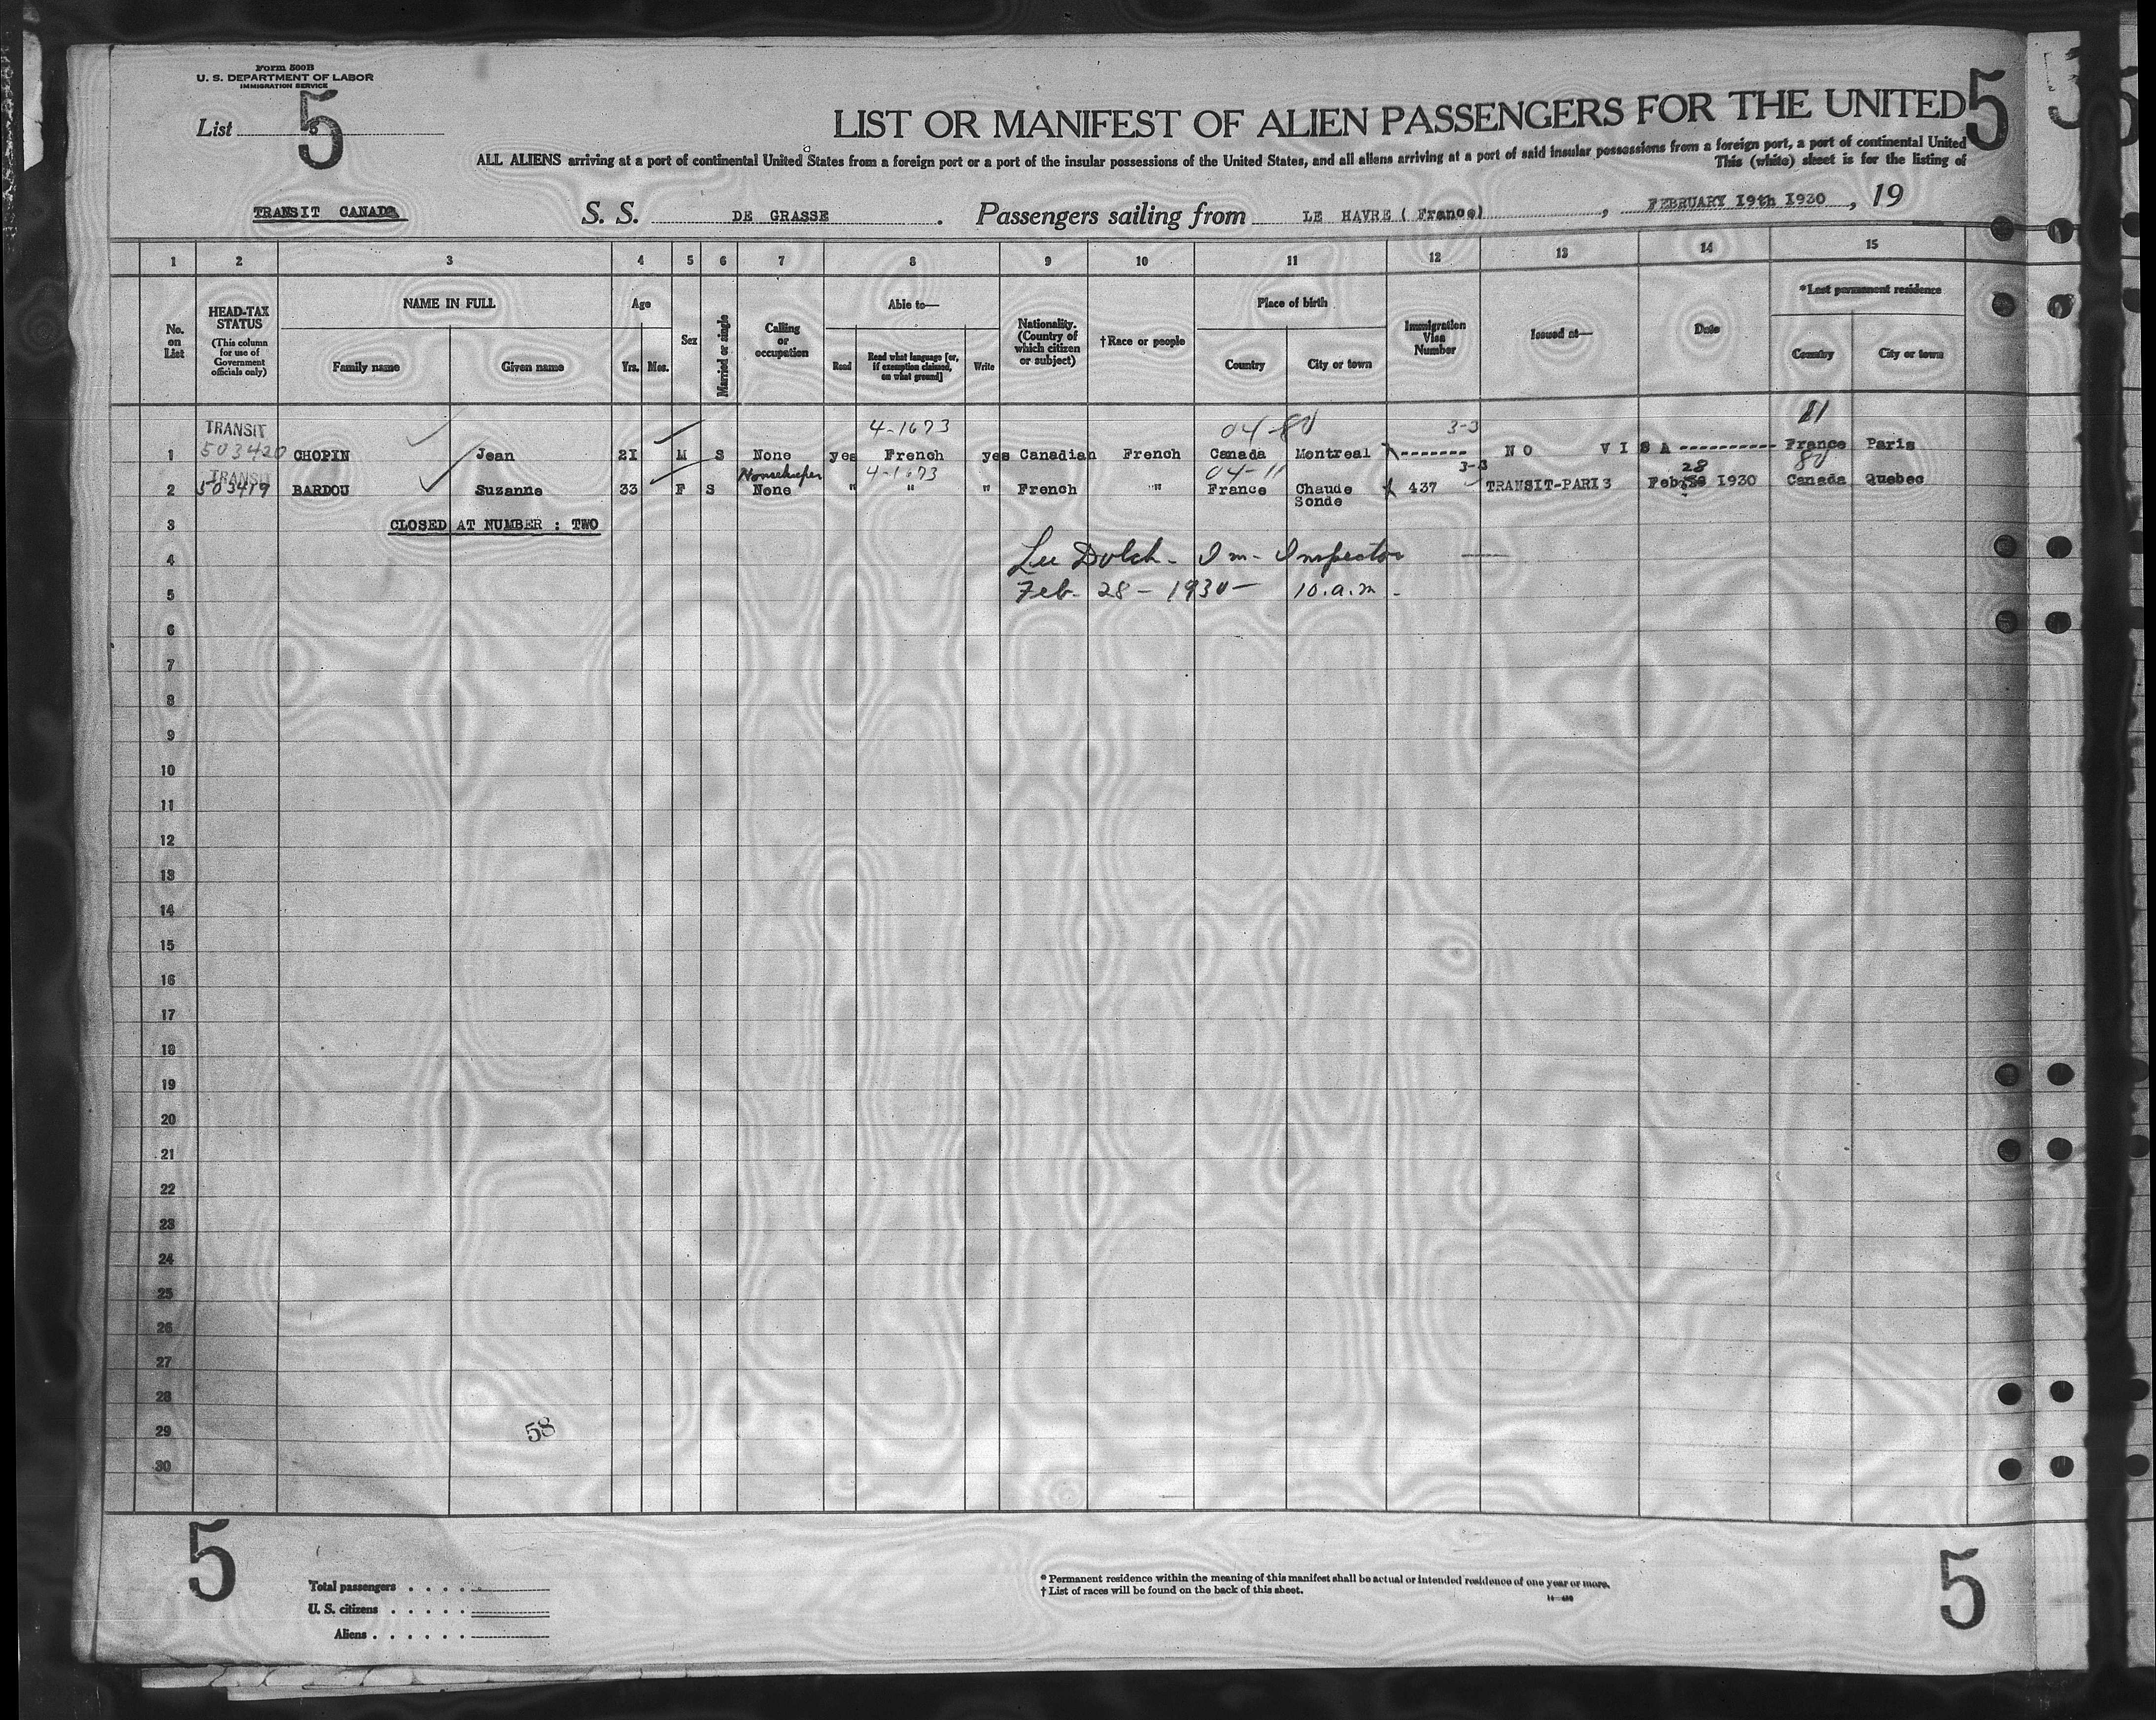 Form 500B
U. S. DEPARTMENT OF LABOR
IMMIGRATION SERVICE
5
List
5
LIST OR MANIFEST OF ALIEN PASSENGERS FOR THE UNITED
ALL ALIENS arriving at a port of continental United States from a foreign port or a port of the insular possessions of the United States, and all aliens arriving at a port of said insular possessions from a foreign port, a port of continental United
This (white) sheet is for the listing of
TRANSIT CANADA S. S. DE GRASSE . Passengers sailing from LE HAVRE ( France) , FEBRUARY 19th 1930 , 19
1 2 3 4 5 6 7 8 9 10 11 12 13 14 15
No. on List
HEAD-TAX STATUS
(This column for use of Government officials only)
NAME IN FULL
Family name Given name
Age
Yrs. Mos.
Sex
Married or single
Calling or occupation
Able to—
Read Read what language [or, if exemption claimed, on what ground] Write
Nationality. (Country of which citizen or subject)
†Race or people
Place of birth
Country City or town
Immigration Visa Number
Issued at—
Date
*Last permanent residence
Country City or town
TRANSIT 4-1673 04-80 3-3
1 503420 CHOPIN Jean 21 M S None yes French yes Canadian French Canada Montreal ------- NO VISA ----------- France Paris
TRANSIT Housekeeper 4-1673 04-11 3-3 28 80
2 503419 BARDOU Suzanne 33 F S None " " " French " France Chaude Sonde 437 TRANSIT-PARIS Feb 1930 Canada Quebec
3 CLOSED AT NUMBER : TWO
4 Lee Dolch - Im- Inspector
5 Feb- 28 - 1930 - 10.a.m -
6
7
8
9
10
11
12
13
14
15
16
17
18
19
20
21
22
23
24
25
26
27
28
29 58
30
5
Total passengers . . . .
U. S. citizens . . . . .
Aliens . . . . . .
* Permanent residence within the meaning of this manifest shall be actual or intended residence of one year or more.
† List of races will be found on the back of this sheet.
5